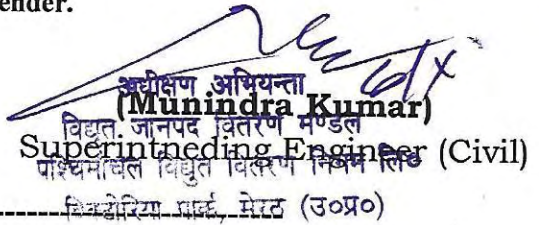 ender.
अधीक्षण अभियन्ता
(Munindra Kumar)
विद्युत जानपद वितरण मण्डल
Superintneding Engineer (Civil)
पश्चिमांचल विद्युत वितरण निगम लि०
विक्टोरिया पार्क, मेरठ (उ०प्र०)